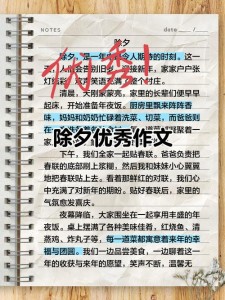 NOTES
date
除夕
优秀!
除夕,是一年中最令人期待的时刻。这一
天,人们会告别旧岁,迎接新年,家家户户张
灯结彩,欢声笑语充满了整个村庄。
清晨,天刚蒙蒙亮,家里的长辈们便早早
起床,开始准备年夜饭。厨房里飘来阵阵香
味,妈妈和奶奶忙碌着洗菜、切菜,而爸爸则
聚着一
除夕优秀作文
下午,我们全家一起贴春联。爸爸负责把
春联的底部刷上浆糊,然后我和妹妹小心翼翼
地把春联贴上去。看着那鲜红的对联,我们心
中充满了对新年的期盼。贴好春联后,家里的
气氛愈发喜庆。
夜幕降临,大家围坐在一起享用丰盛的年
夜饭。桌上摆满了各种美味佳肴,红烧鱼、清
蒸鸡、炸丸子等,每一道菜都寓意着来年的幸
福与团圆。我们一边品尝美食,一边聊着这一
年的收获与来年的愿望,笑声不断,温馨无